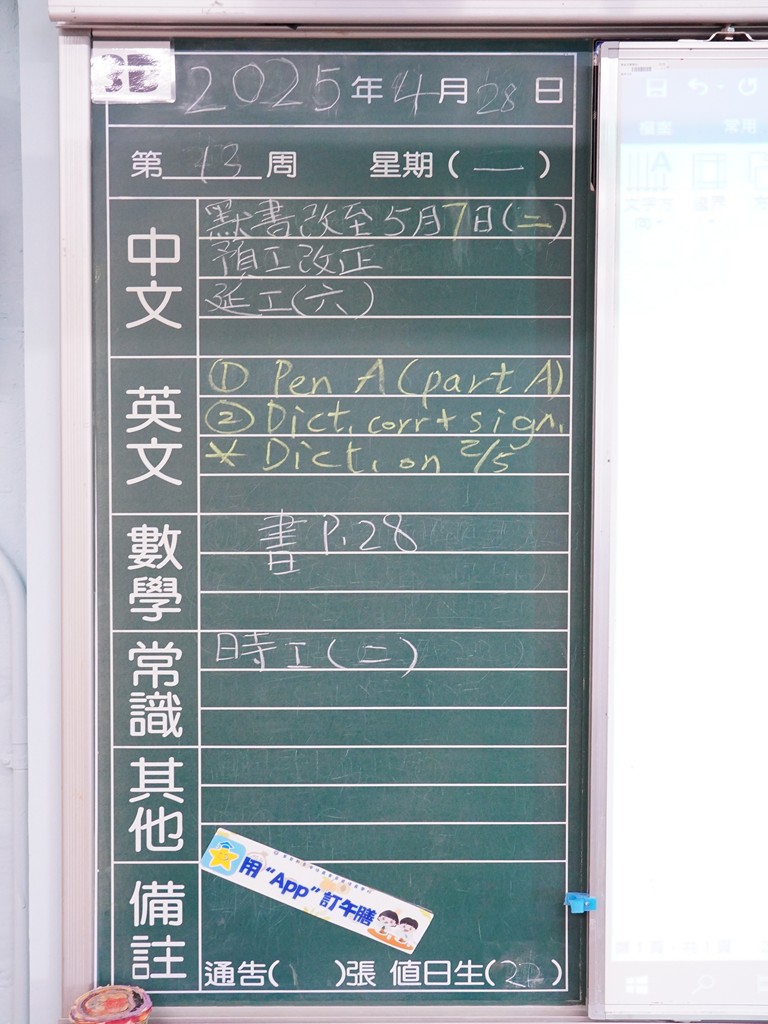 3D
2025年4月28日
第13周 星期(一)
中文
默書改至5月7日(二)
預工改正
延工(六)
英文
① Pen A (part A)
② Dict. corr + sign.
* Dict. on 2/5
數學
書 P.28
常識
時工(二)
其他
備註
用“App”訂午膳
通告( )張 值日生( )
檔案 常用